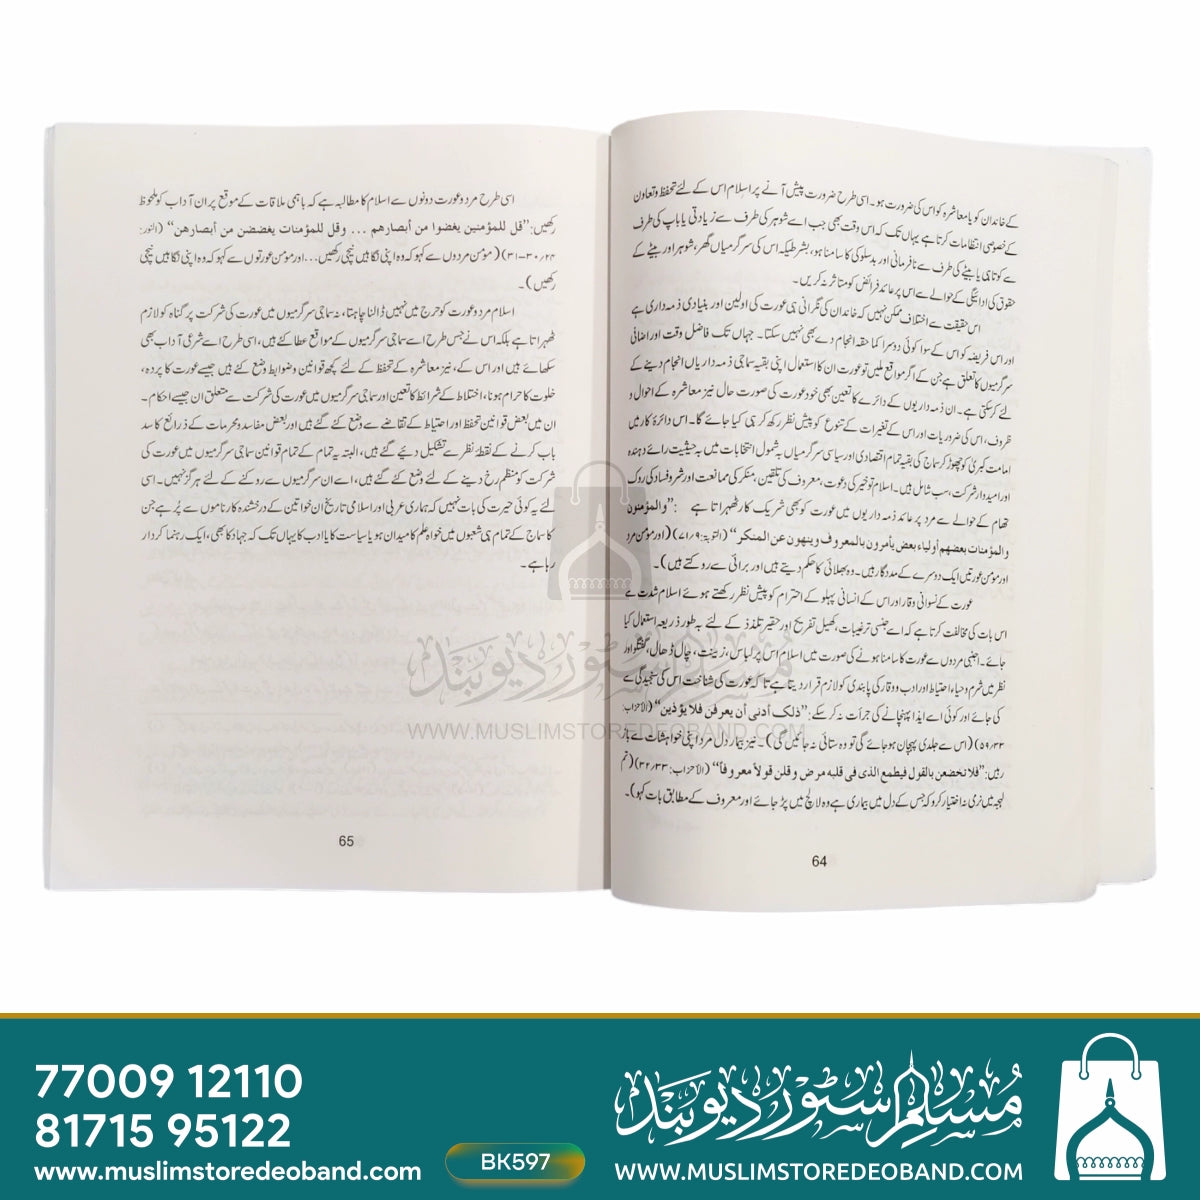 کے خاندان کو یا معاشرہ کو اس کی ضرورت ہو۔ اسی طرح ضرورت پیش آنے پر اسلام اس کے لئے تحفظ و تعاون
کے خصوصی انتظامات کرتا ہے یہاں تک کہ اس وقت بھی جب اسے شوہر کی طرف سے زیادتی یا باپ کی طرف
سے کوتاہی یا بیٹے کی طرف سے نافرمانی اور بدسلوکی کا سامنا ہو، بشرطیکہ اس کی سرگرمیاں گھر، شوہر اور بیٹے کے
حقوق کی ادائیگی کے حوالے سے اس پر عائد فرائض کو متاثر نہ کریں۔
اس حقیقت سے اختلاف ممکن نہیں کہ خاندان کی نگرانی ہی عورت کی اولین اور بنیادی ذمہ داری ہے
اور اس فریضہ کو اس کے سوا کوئی دوسرا کما حقہ انجام دے بھی نہیں سکتا۔ جہاں تک فاضل وقت اور اضافی
سرگرمیوں کا تعلق ہے جن کے اگر مواقع ملیں تو عورت ان کا استعمال اپنی بقیہ سماجی ذمہ داریاں انجام دینے کے
لئے کرسکتی ہے۔ ان ذمہ داریوں کے دائرے کا تعین بھی خود عورت کی صورت حال نیز معاشرہ کے احوال و
ظروف، اس کی ضروریات اور اس کے تغیرات کے تنوع کو پیش نظر رکھ کر ہی کیا جائے گا۔ اس دائرۂ کار میں
امامت کبریٰ کو چھوڑ کر سماج کی بقیہ تمام اقتصادی اور سیاسی سرگرمیاں بہ شمول انتخابات میں بہ حیثیت رائے دہندہ
اور امیدوار شرکت، سب شامل ہیں۔ اسلام تو خیر کی دعوت، معروف کی تلقین، منکر کی ممانعت اور شر و فساد کی روک
تھام کے حوالے سے مرد پر عائد ذمہ داریوں میں عورت کو بھی شریک کار ٹھہراتا ہے: ”والمؤمنون
والمؤمنات بعضهم أولياء بعض يأمرون بالمعروف وينهون عن المنكر“ (التوبۃ:۷۱/۹) (اور مومن مرد
اور مومن عورتیں ایک دوسرے کے مددگار ہیں۔ وہ بھلائی کا حکم دیتے ہیں اور برائی سے روکتے ہیں)۔
عورت کے نسوانی وقار اور اس کے انسانی پہلو کے احترام کو پیش نظر رکھتے ہوئے اسلام شدت سے
اس بات کی مخالفت کرتا ہے کہ اسے جنسی ترغیبات، کھیل تفریح اور حقیر تلذذ کے لئے بہ طور ذریعہ استعمال کیا
جائے۔ اجنبی مردوں سے عورت کا سامنا ہونے کی صورت میں اسلام اس پر لباس، زینت، چال ڈھال، گفتگو اور
نظر میں شرم و حیاء، احتیاط اور ادب و وقار کی پابندی کو لازم قرار دیتا ہے تاکہ عورت کی شناخت اس کی سنجیدگی سے
کی جائے اور کوئی اسے ایذا پہنچانے کی جرأت نہ کرسکے: ”ذلك أدنى أن يعرفن فلا يؤذين“ (الأحزاب:
۵۹/۳۳) (اس سے جلدی پہچان ہوجائے گی تو وہ ستائی نہ جائیں گی)۔ نیز بیمار دل مرد اپنی خواہشات سے باز
رہیں: ”فلا تخضعن بالقول فيطمع الذى فى قلبه مرض وقلن قولا معروفاً“ (الأحزاب:۳۲/۳۳) (تم
لہجہ میں نرمی نہ اختیار کرو کہ جس کے دل میں بیماری ہے وہ لالچ میں پڑ جائے اور معروف کے مطابق بات کہو)۔
64
اسی طرح مرد و عورت دونوں سے اسلام کا مطالبہ ہے کہ باہمی ملاقات کے موقع پر ان آداب کو ملحوظ
رکھیں: ”قل للمؤمنين يغضوا من أبصارهم ... وقل للمؤمنات يغضضن من أبصارهن“ (النور:
۲۴/۳۰-۳۱) (مومن مردوں سے کہو کہ وہ اپنی نگاہیں نیچی رکھیں... اور مومن عورتوں سے کہو کہ وہ اپنی نگاہیں نیچی
رکھیں)۔
اسلام مرد و عورت کو حرج میں نہیں ڈالنا چاہتا، نہ سماجی سرگرمیوں میں عورت کی شرکت پر گناہ کو لازم
ٹھہراتا ہے بلکہ اس نے جس طرح اسے سماجی سرگرمیوں کے مواقع عطا کئے ہیں، اسی طرح اسے شرعی آداب بھی
سکھائے ہیں اور اس کے، نیز معاشرہ کے تحفظ کے لئے کچھ قوانین و ضوابط وضع کئے ہیں جیسے عورت کا پردہ،
خلوت کا حرام ہونا، اختلاط کے شرائط کا تعین اور سماجی سرگرمیوں میں عورت کی شرکت سے متعلق ان جیسے احکام۔
ان میں بعض قوانین تحفظ اور احتیاط کے تقاضے سے وضع کئے گئے ہیں اور بعض مفاسد و محرمات کے ذرائع کا سد
باب کرنے کے نقطۂ نظر سے تشکیل دیئے گئے ہیں، البتہ یہ تمام کے تمام قوانین سماجی سرگرمیوں میں عورت کی
شرکت کو منظم رخ دینے کے لئے وضع کئے گئے ہیں، اسے ان سرگرمیوں سے روکنے کے لئے ہرگز نہیں۔ اسی
لئے یہ کوئی حیرت کی بات نہیں کہ ہماری عربی اور اسلامی تاریخ ان خواتین کے درخشندہ کارناموں سے پُر ہے جن
کا سماج کے تمام ہی شعبوں میں خواہ علم کا میدان ہو یا سیاست کا یا ادب کا یہاں تک کہ جہاد کا بھی، ایک رہنما کردار
رہا ہے۔
65
مسلم سٹور دیوبند
WWW.MUSLIMSTOREDEOBAND.COM
77009 12110
81715 95122
www.muslimstoredeoband.com
BK597
مسلم سٹور دیوبند
WWW.MUSLIMSTOREDEOBAND.COM